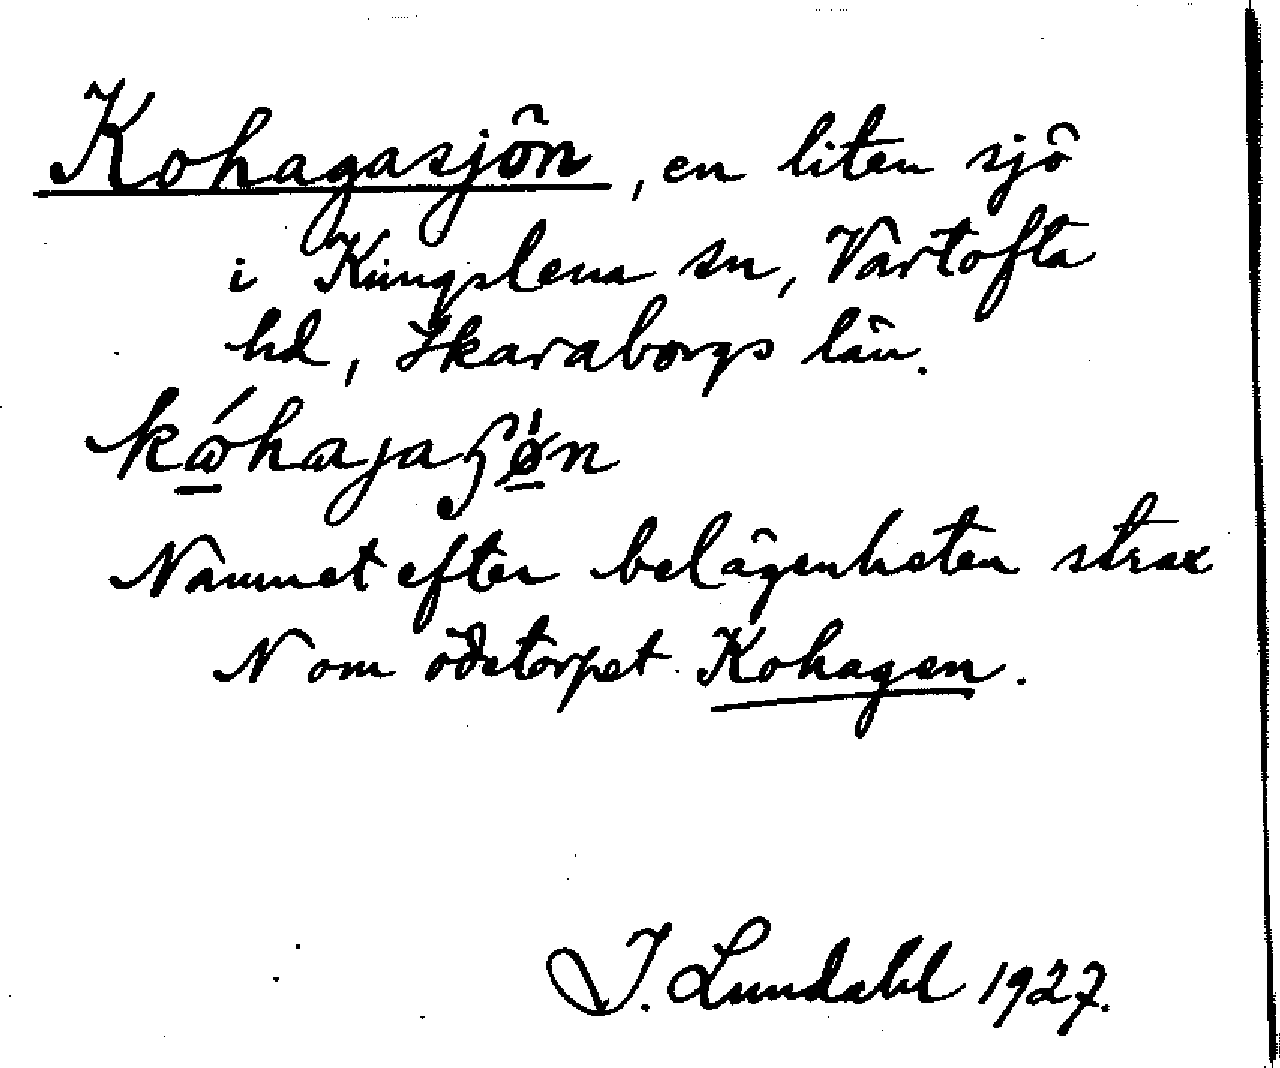 Kohagasjön, en liten sjö
i Kungslena sn, Vartofta
hd, Skaraborgs län.
Namnet efter belägenheten strax
N om ödetorpet Kohagen.
I. Lundahl 1927.